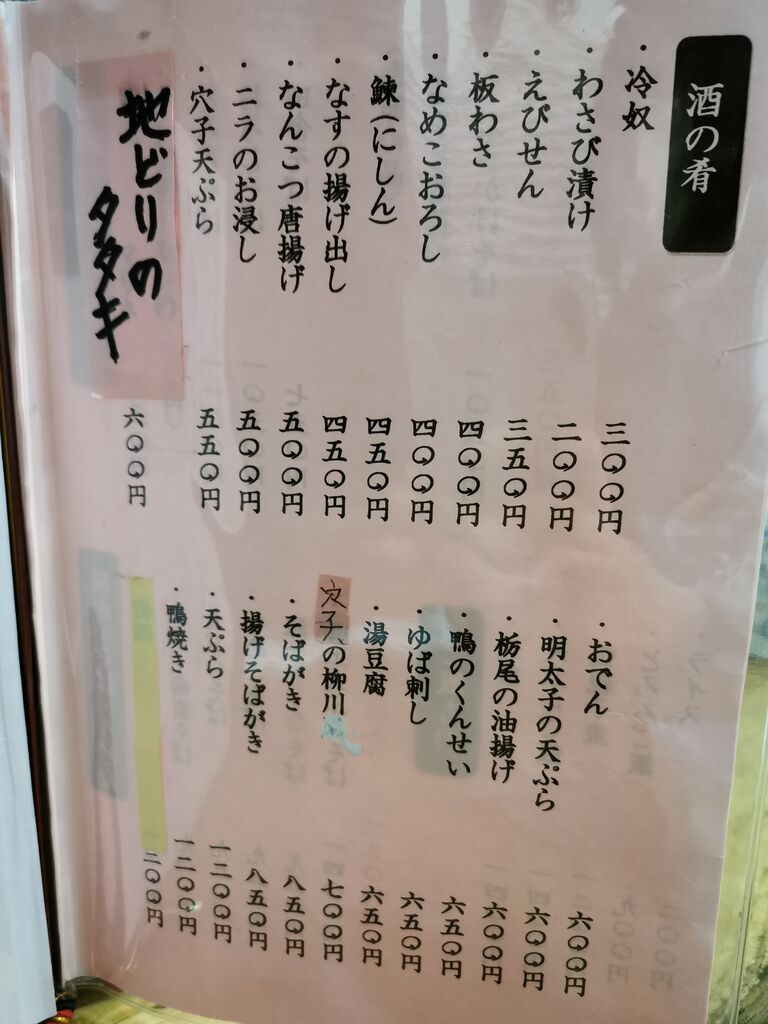 酒の肴
・冷奴 三〇〇円
・わさび漬け 二〇〇円
・えびせん 三五〇円
・板わさ 四〇〇円
・なめこおろし 四〇〇円
・鰊(にしん) 四五〇円
・なすの揚げ出し 四五〇円
・なんこつ唐揚げ 五〇〇円
・ニラのお浸し 五〇〇円
・穴子天ぷら 五五〇円
地どりのタタキ 六〇〇円
・おでん 六〇〇円
・明太子の天ぷら 六〇〇円
・栃尾の油揚げ 六〇〇円
・鴨のくんせい 六五〇円
・ゆば刺し 六五〇円
・湯豆腐 六五〇円
穴子の柳川 七〇〇円
・そばがき 八五〇円
・揚げそばがき 八五〇円
・天ぷら 一二〇〇円
・鴨焼き 一二〇〇円
二〇〇円